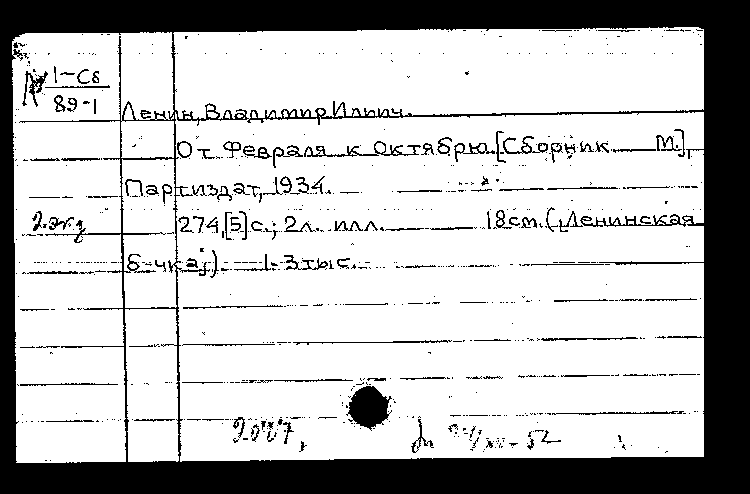 1-Сб
89-1
Ленин, Владимир Ильич.
От Февраля к Октябрю. [Сборник М.],
Партиздат, 1934.
2.экз
274,[5]с.; 2л. илл. 18см. („Ленинская
б-чка„). 1-3тыс.